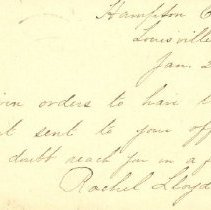 Hampton C
Louisville
Jan. 2
orders to have t
t sent to your off
doubt reach you in a f
Rachel Lloyd